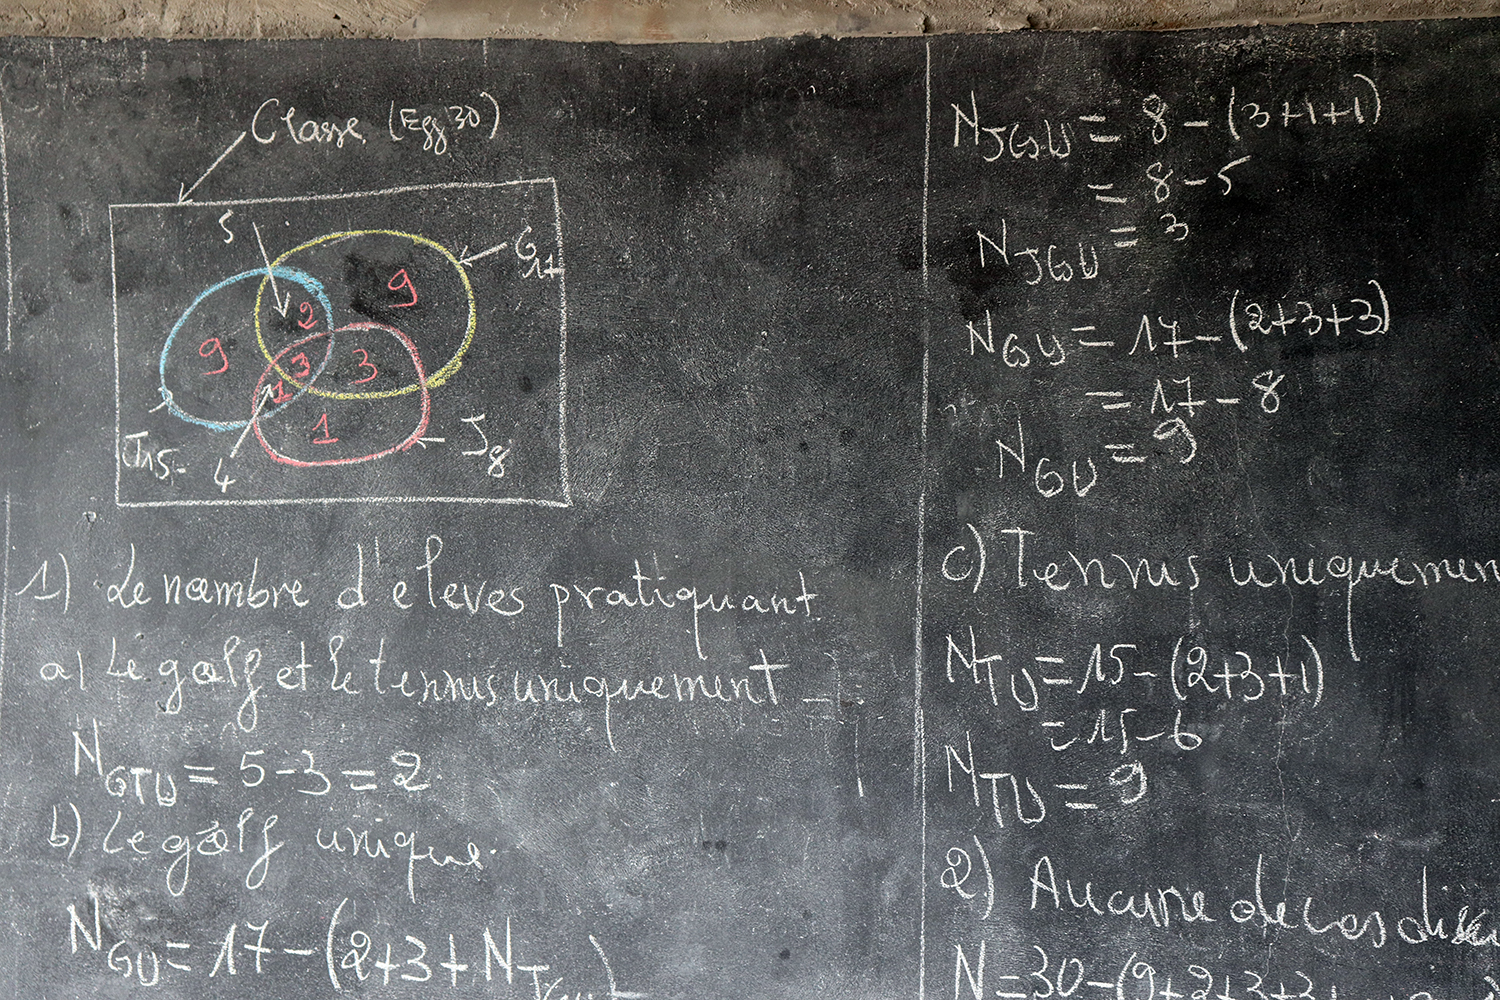 Classe (Eff 30)
5
G17
9
2
9
3
3
1
1
J8
T15
4
1) Le nombre d'eleves pratiquant
a) Le golf et le tennis uniquement
NGTU = 5-3 = 2
b) Le golf unique
NGU = 17-(2+3+NJGU)
NJGU = 8-(3+1+1)
= 8-5
NJGU = 3
NGU = 17-(2+3+3)
= 17-8
NGU = 9
c) Tennis uniquemen
NTU = 15-(2+3+1)
= 15-6
NTU = 9
2) Aucune de ces
N=30-(9+2+3+3+